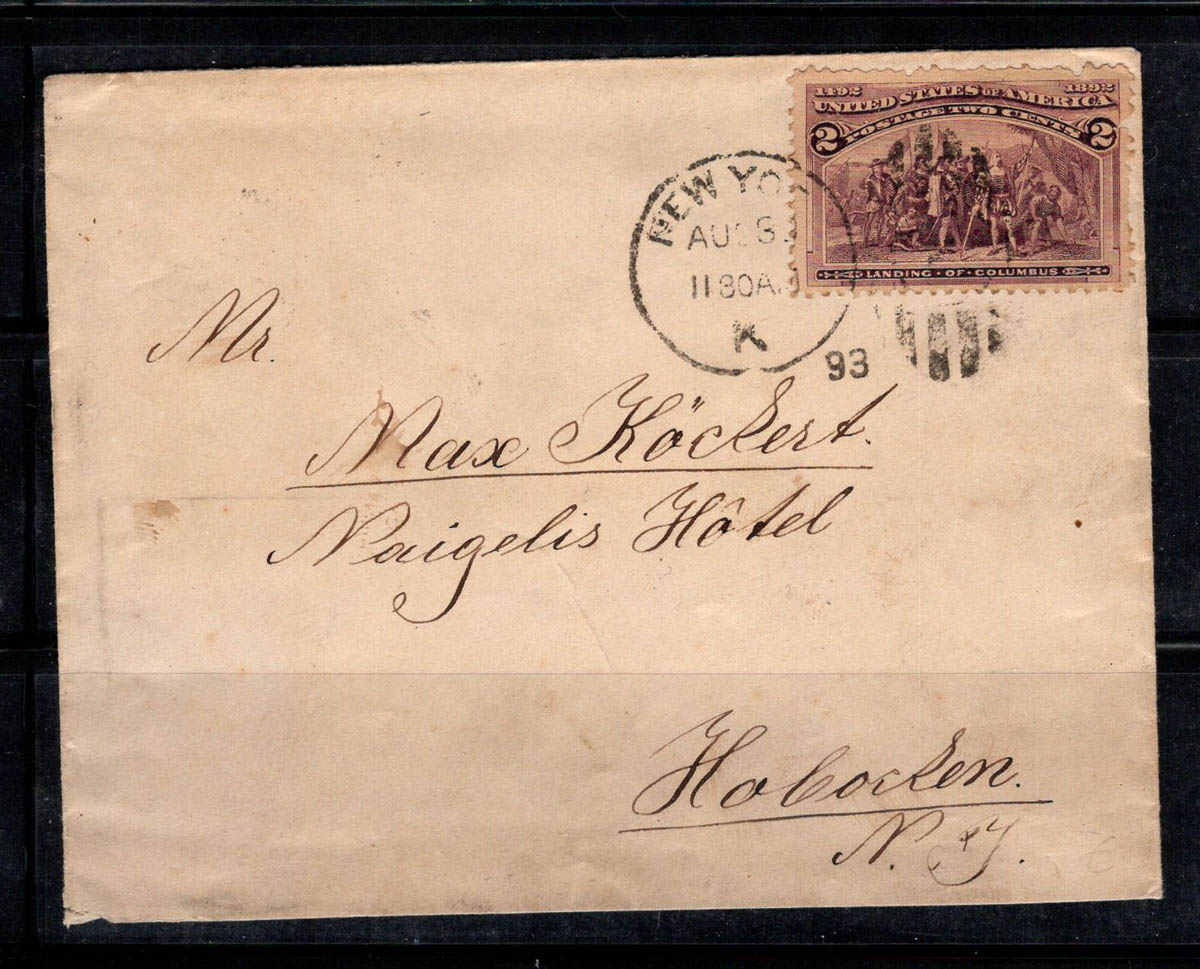 1492 1892
UNITED STATES OF AMERICA
2 POSTAGE TWO CENTS 2
LANDING · OF · COLUMBUS
NEW YO
AUG 3
11 30A
K
93
Mr.
Max Köckert.
Naigelis Hôtel
Hobocken.
N. J.